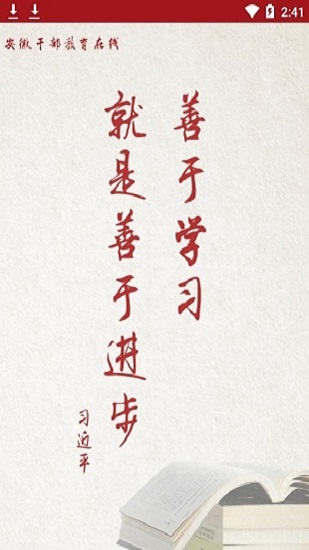 2:41
安徽干部教育在线
善于学习
就是善于进步
习近平